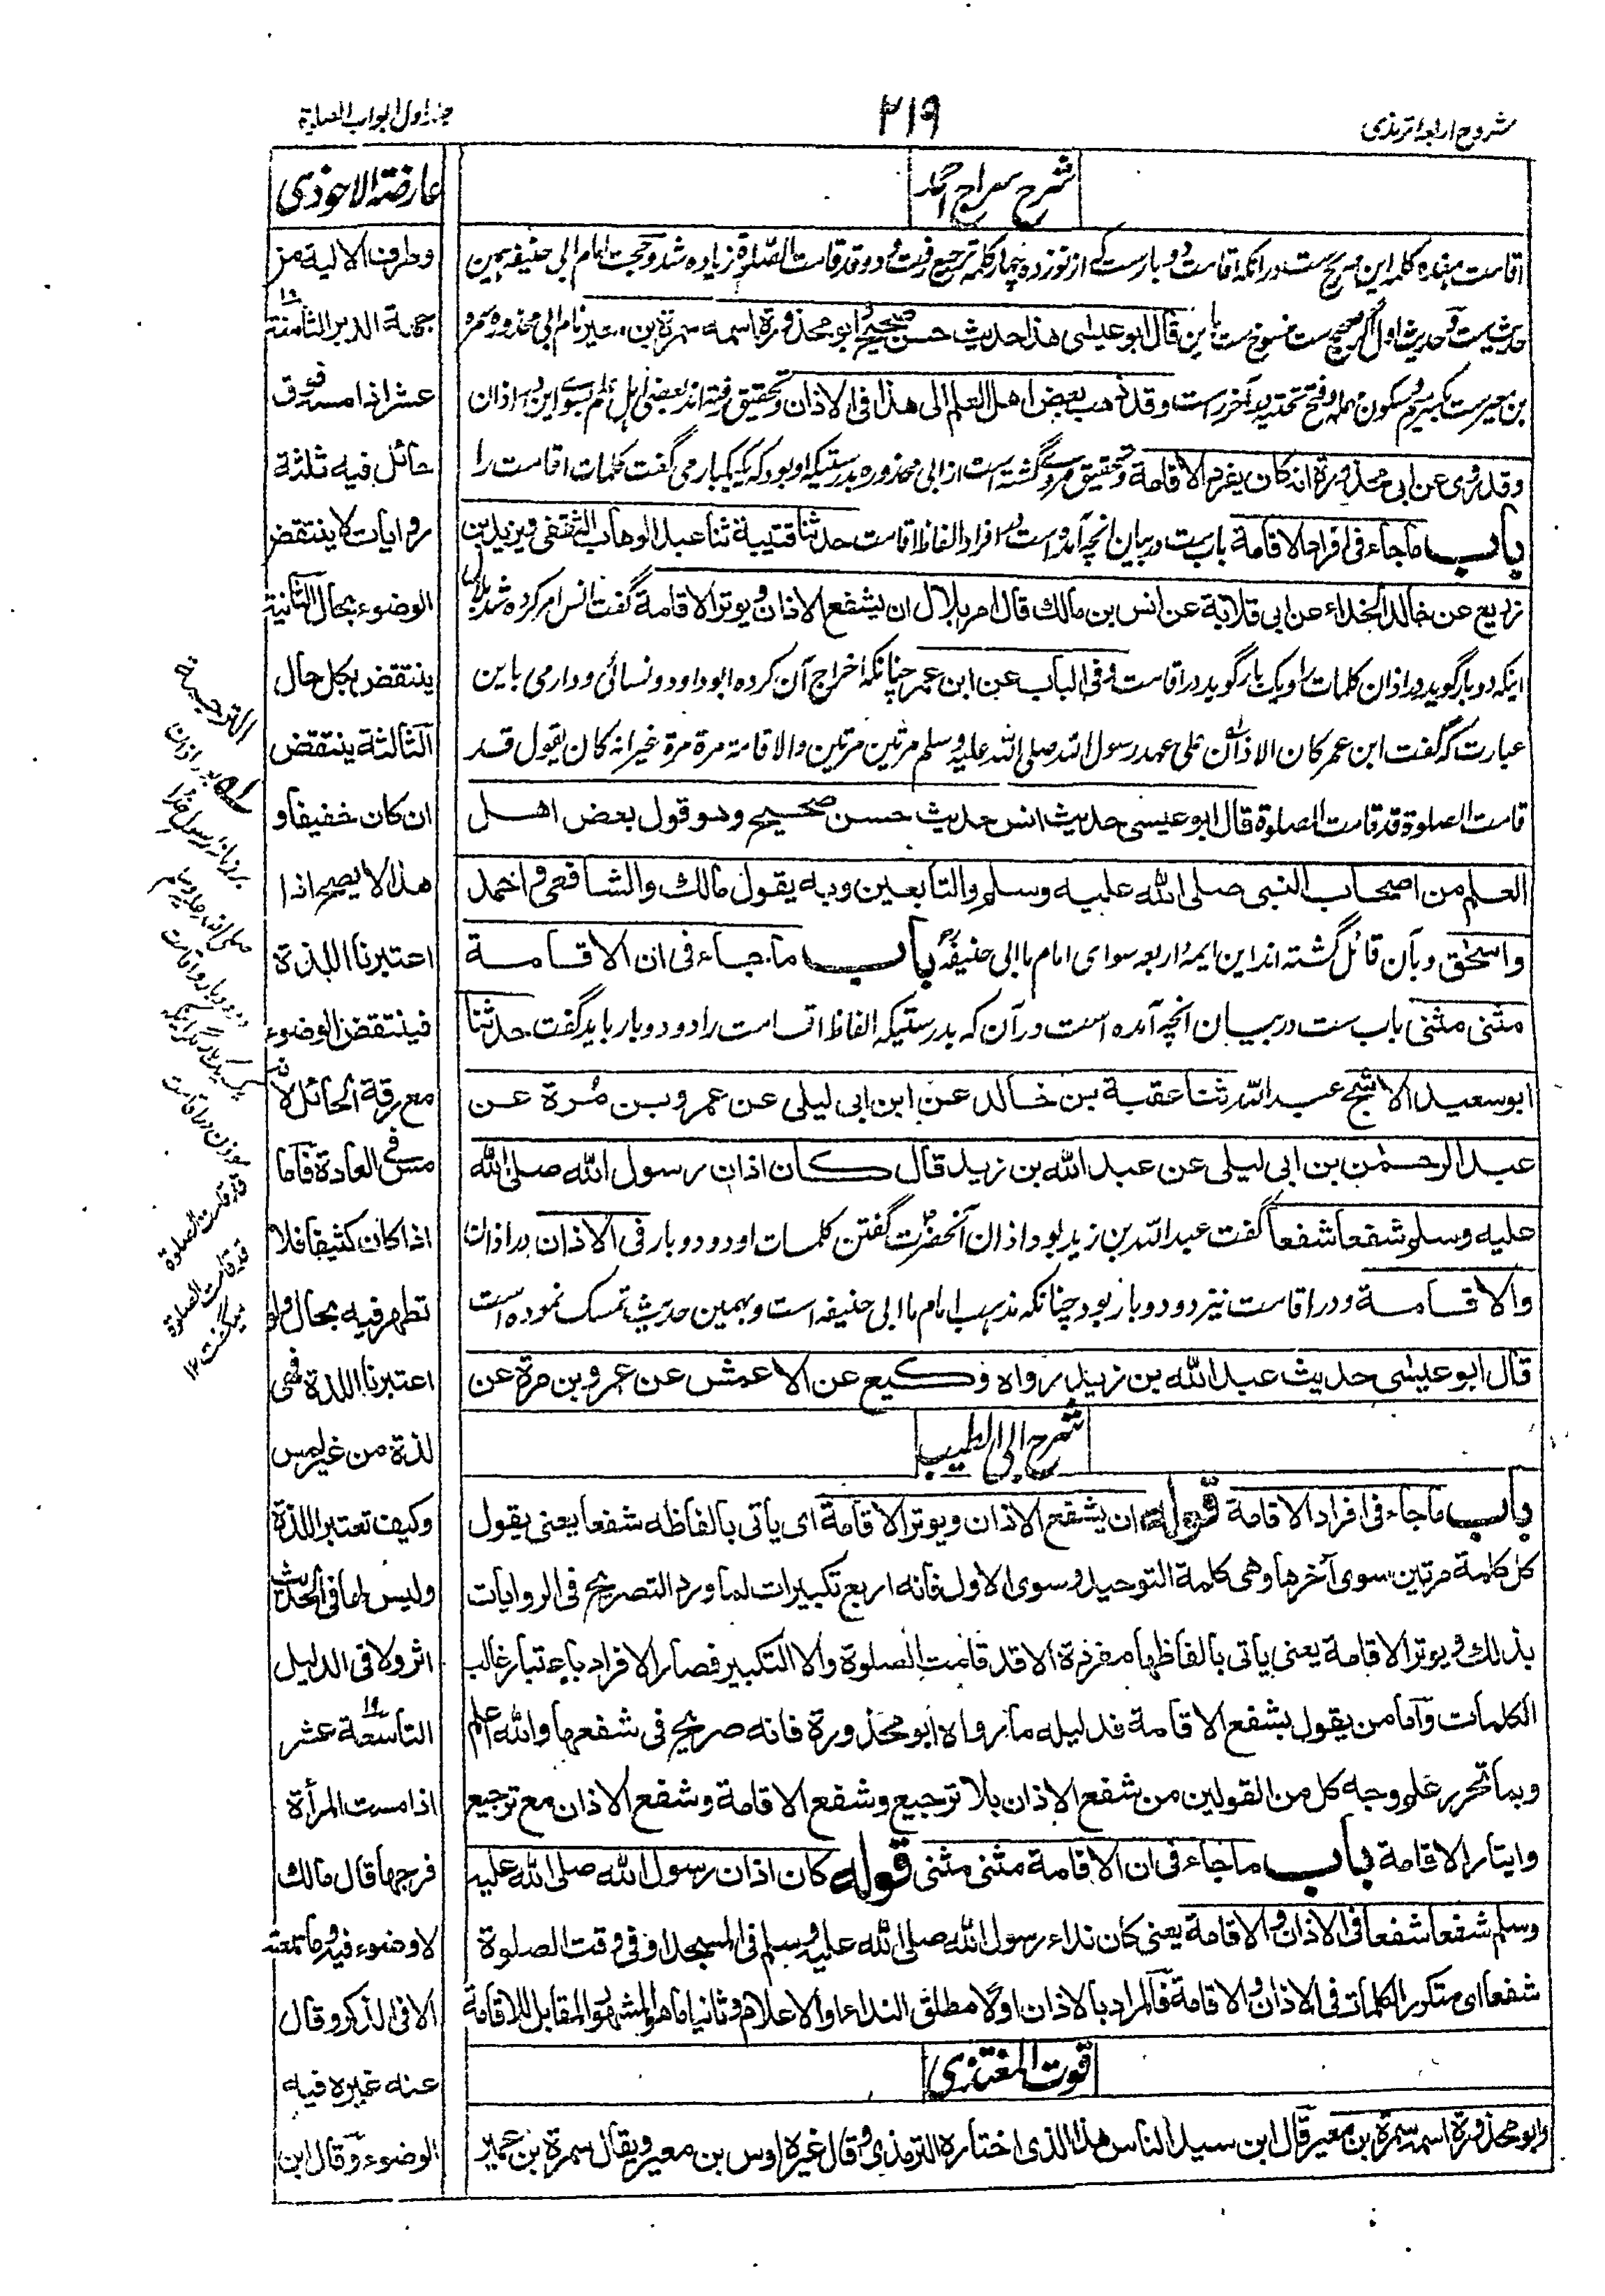 شروح اربعہ ترمذی
۲۱۹
جلد اول ابواب الصلوة
شرح سراج احمد
اقامت ہفدہ کلمہ این صریح ست درانکہ اقامت دوبارست کہ از نوزدہ چہار کلمہ ترجیع رفت و دو قد قامت الصلوة زیادہ شد و حجت امام ابی حنیفہ ہمین
حدیث ست و حدیث اول اگر صحیح ست منسوخ ست باین قال ابو عیسی هذا حدیث حسن صحیح و ابو محذورة اسمه سمرة بن معیر نام ابی محذورہ سمرہ
بن معیر ست بکسر میم و سکون مہملہ و فتح تحتیہ و در آخر راست وقد ذهب بعض اهل العلم الی هذا فی الاذان و تحقیق رفتہ اند بعضی اہل علم بسوی این در اذان
وقد روی عن ابی محذورة انه کان یفرد الاقامة و تحقیق مروی گشتہ است از ابی محذورہ بدرستیکہ او بود کہ یک یکبار می گفت کلمات اقامت را
باب ما جاء فی افراد الاقامة باب ست در بیان آنچہ آمدہ است در افراد الفاظ اقامت حدثنا قتیبة ثنا عبد الوهاب الثقفی ویزید بن
زریع عن خالد الحذاء عن ابی قلابة عن انس بن مالك قال امر بلال ان یشفع الاذان ویوتر الاقامة گفت انس امر کردہ شد بلال
اینکہ دوبار گوید در اذان کلمات را و یک بار گوید در اقامت وفی الباب عن ابن عمر چنانکہ اخراج آن کردہ ابو داود و نسائی و دارمی باین
عبارت کہ گفت ابن عمر کان الاذان علی عہد رسول اللہ صلی اللہ علیہ وسلم مرتین مرتین والاقامة مرة مرة غیر انہ کان یقول قد
قامت الصلوة قد قامت الصلوة قال ابو عیسی حدیث انس حدیث حسن صحیح وهو قول بعض اهل
العلم من اصحاب النبی صلی الله علیه وسلم والتابعین وبه یقول مالك والشافعی واحمد
واسحٰق و بآن قائل گشتہ اند این ایمہ اربعہ سوای امام ما ابی حنیفہؒ باب ما جاء فی ان الاقامة
مثنی مثنی باب ست در بیان آنچہ آمدہ است در آن کہ بدرستیکہ الفاظ اقامت را دو دوبار باید گفت حدثنا
ابو سعید الاشج عبد الله ثنا عقبة بن خالد عن ابن ابی لیلی عن عمرو بن مُرة عن
عبد الرحمٰن بن ابی لیلی عن عبد الله بن زید قال کان اذان رسول الله صلی الله
علیه وسلم شفعا شفعا گفت عبد اللہ بن زید بود اذان آنحضرتؐ گفتن کلمات او دو دوبار فی الاذان در اذان
والاقامة و در اقامت نیز دو دوبار بود چنانکہ مذہب امام ما ابی حنیفہ است و بہمین حدیث تمسک نمودہ است
قال ابو عیسٰی حدیث عبد الله بن زید رواه وکیع عن الاعمش عن عمرو بن مرة عن
شرح ابی الطیب
باب ما جاء فی افراد الاقامة قوله ان یشفع الاذان ویوتر الاقامة ای یأتی بالفاظه شفعا یعنی یقول
کل کلمة مرتین سوی آخرها وهی کلمة التوحید وسوی الاول فانه اربع تکبیرات لما ورد التصریح فی الروایات
بذلك ویوتر الاقامة یعنی یاتی بالفاظها مفردة الا قد قامت الصلوة والا التکبیر فصار الافراد باعتبار غالب
الکلمات وأما من یقول بشفع الاقامة فدلیله ما رواه ابو محذورة فانه صریح فی شفعها والله اعلم
وبما تحرر علم وجه کل من القولین من شفع الاذان بلا ترجیع وشفع الاقامة وشفع الاذان مع ترجیع
وایتار الاقامة باب ما جاء فی ان الاقامة مثنی مثنی قوله کان اذان رسول الله صلی الله علیه
وسلم شفعا شفعا فی الاذان والاقامة یعنی کان نداء رسول الله صلی الله علیه وسلم فی المسجد او فی وقت الصلوة
شفعا ای متکرر الکلمات فی الاذان والاقامة فالمراد بالاذان اولا مطلق النداء او الاعلام وثانیا ما هو المشهور المقابل للاقامة
قوت المغتذی
وابو محذورة اسمه سمرة بن معیر قال ابن سید الناس هذا الذی اختاره الترمذی وقال غیره اوس بن معیر ویقال سمرة بن عمیر
عارضة الاحوذی
وطرف الالیة من
جهة الدبر الثامنة
عشر اذا مس فوق
حائل فیه ثلثة
روایات لا ینتقض
الوضوء بحال الثانیة
ینتقض بکل حال
الثالثة ینتقض
ان کان خفیفا و
هذا لا یصح اذا
اعتبرنا اللذة
فینتقض الوضوء
مع رقة الحائل لا
مس فی العادة فاما
اذا کان کثیفا فلا
تظهر فیه بحال ولو
اعتبرنا اللذة فهی
لذة من غیر لمس
وکیف تعتبر اللذة
ولیس لها فی الحدیث
اثر ولا فی الدلیل
التاسعة عشر
اذا مست المرأة
فرجها قال مالك
لا وضوء فیه وما سمعته
الا فی الذکر وقال
عنه غیره فیه
الوضوء وقال ابن
الترجمة
بود اذان
بر زمانہ رسول خدا
صلی اللہ علیہ وسلم
دو دوبار و اقامت
یک یکبار مگر اینکہ
موذن در اقامت
قد قامت الصلوة
قد قامت الصلوة
میگفت ۱۲